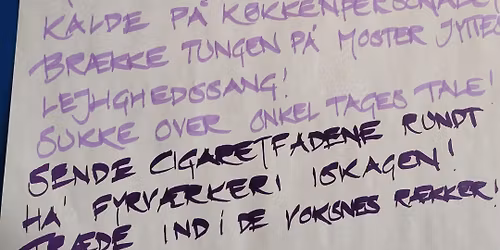 KALDE PÅ KØKKENPERSONALE
BRÆKKE TUNGEN PÅ MOSTER JYTTES
LEJLIGHEDSSANG!
SUKKE OVER ONKEL TAGES TALE!
SENDE CIGARETFADENE RUNDT
HA' FYRVÆRKERI I ISKAGEN!
TRÆDE IND I DE VOKSNES RÆKKER!